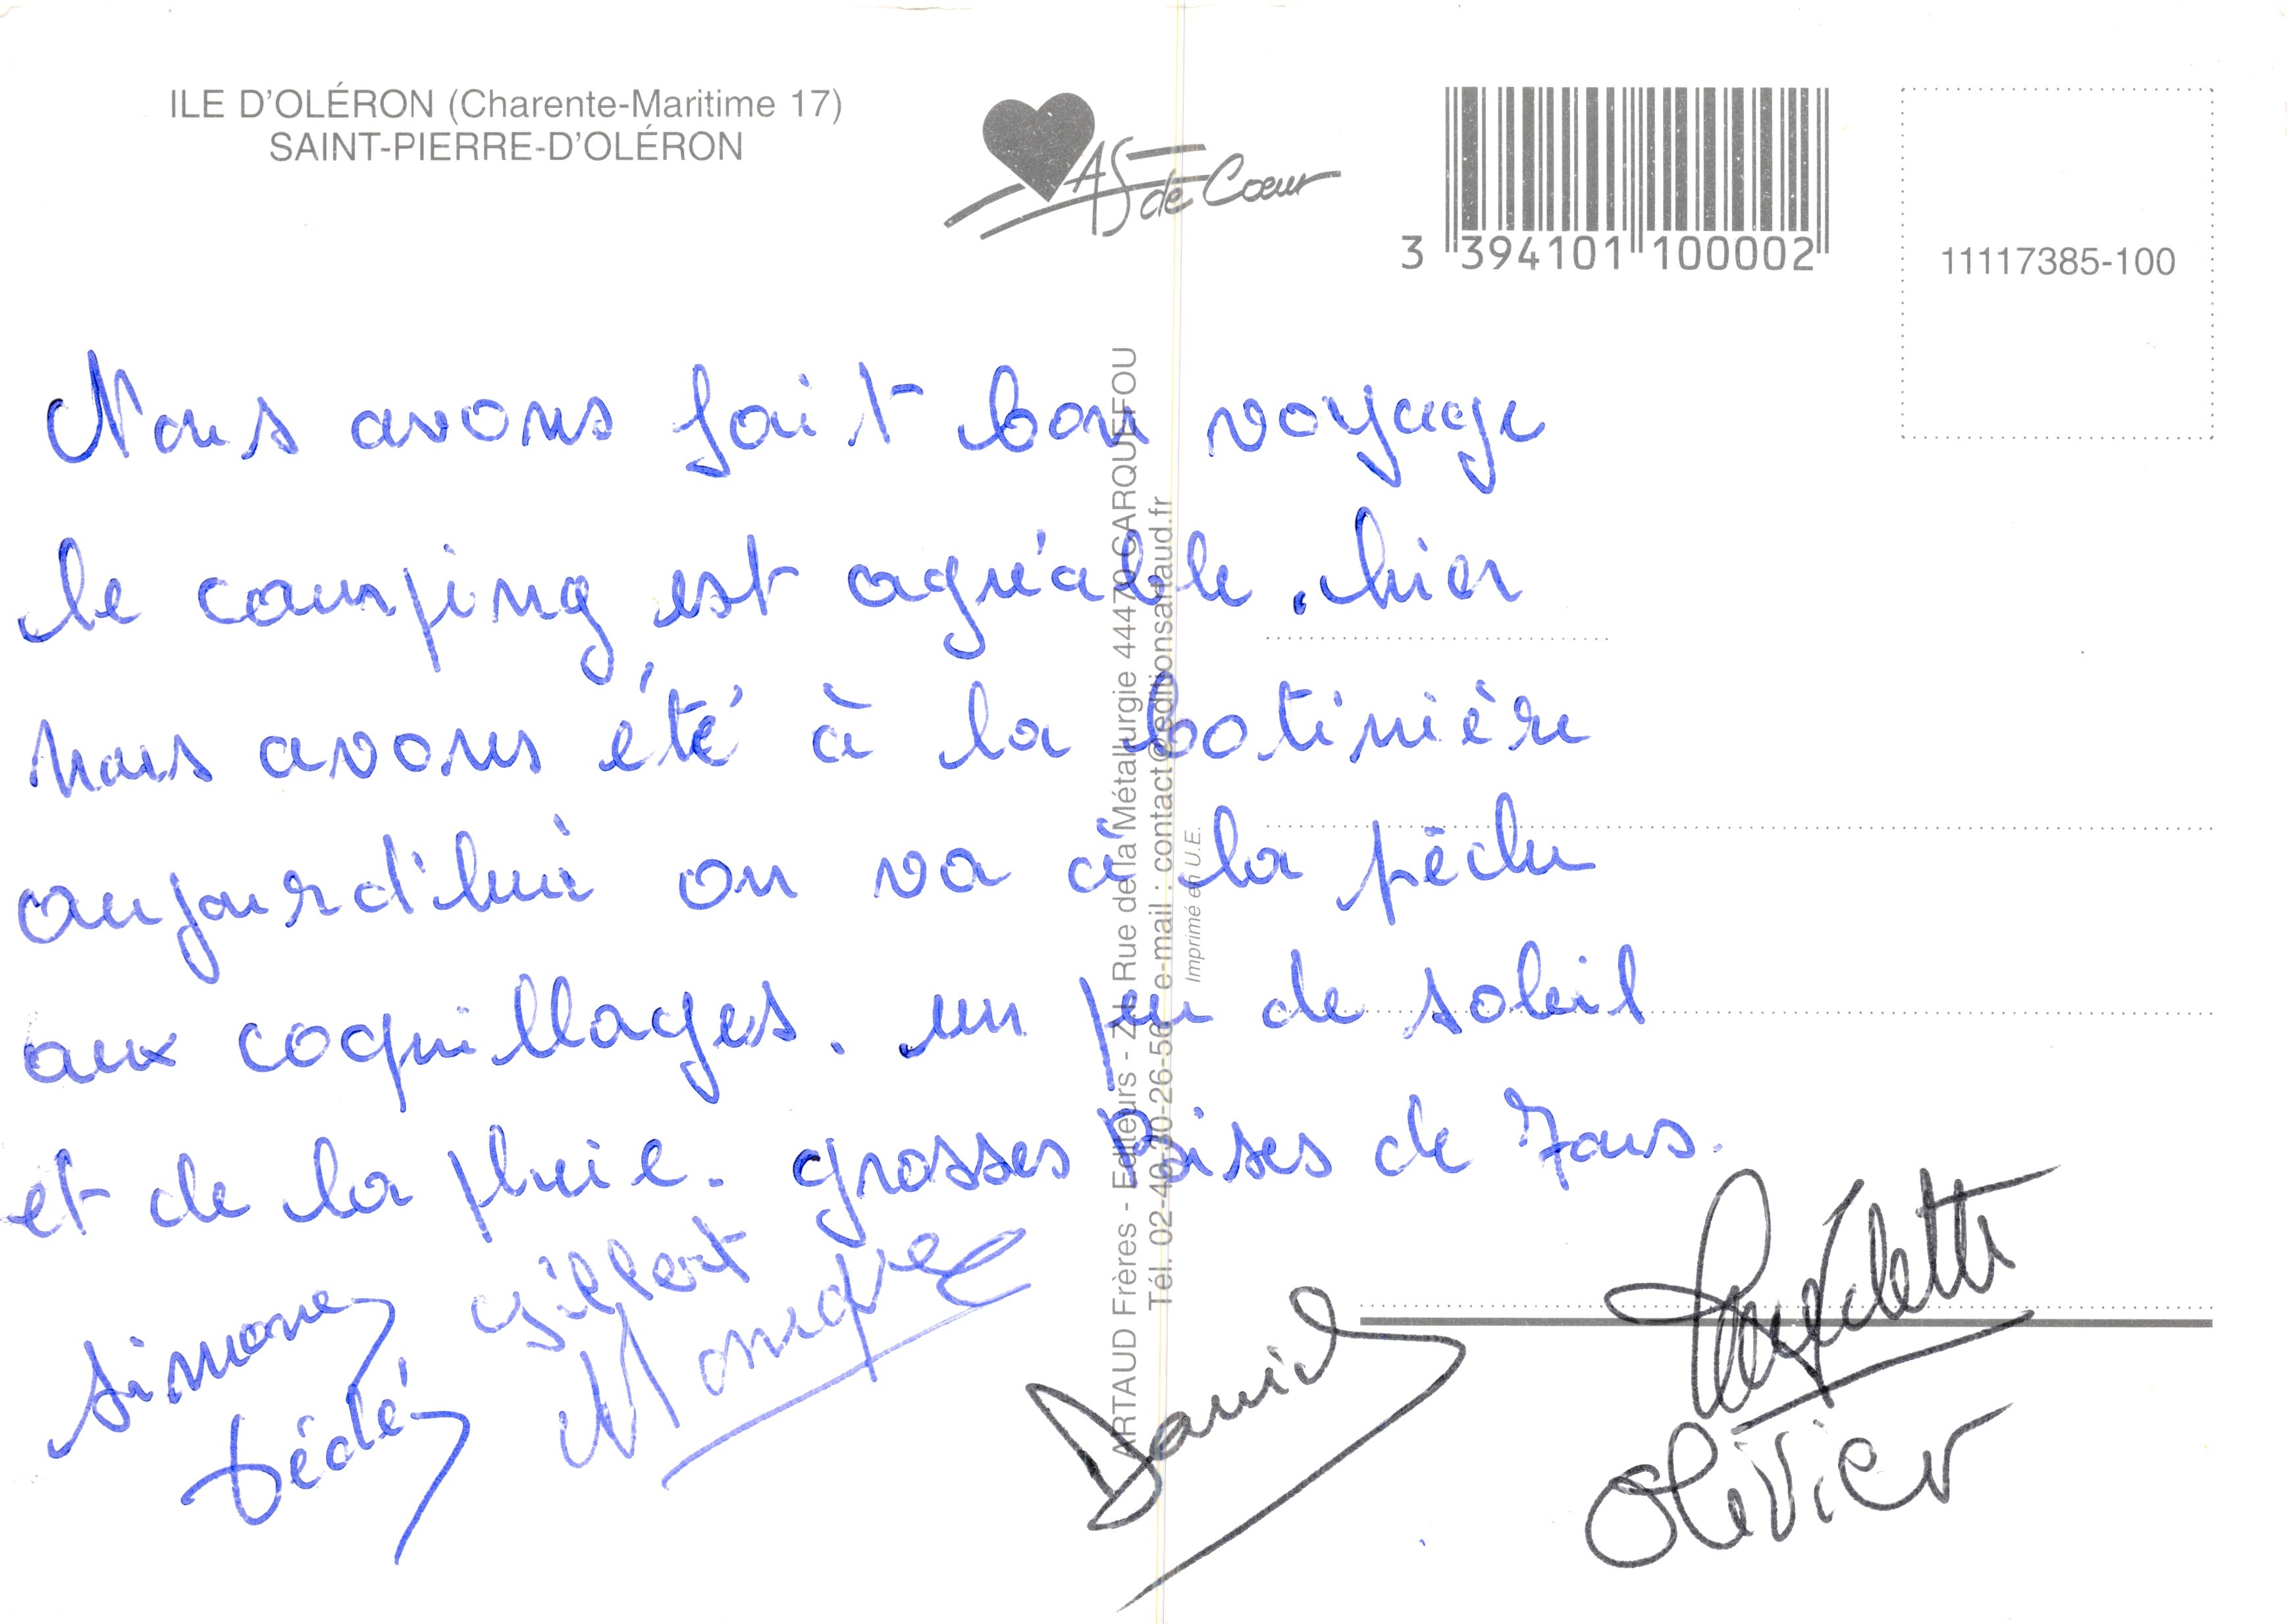 ILE D'OLÉRON (Charente-Maritime 17)
SAINT-PIERRE-D'OLÉRON
AS de Cœur
3 394101 100002
11117385-100
Nous avons fait bon voyage
le camping est agréable. hier
nous avons été à la botinière
aujourd'hui on va à la pêche
aux coquillages. un peu de soleil
et de la pluie. grosses bises de Tous.
Simone
Gilbert
Dédé
Monique
Daniel
Bernadette
Olivier
ARTAUD Frères - Editeurs - Z.I. Rue de la Métallurgie 44470 CARQUEFOU
Tél. 02-40-30-26-56 e-mail : contact@editionsartaud.fr
Imprimé en U.E.